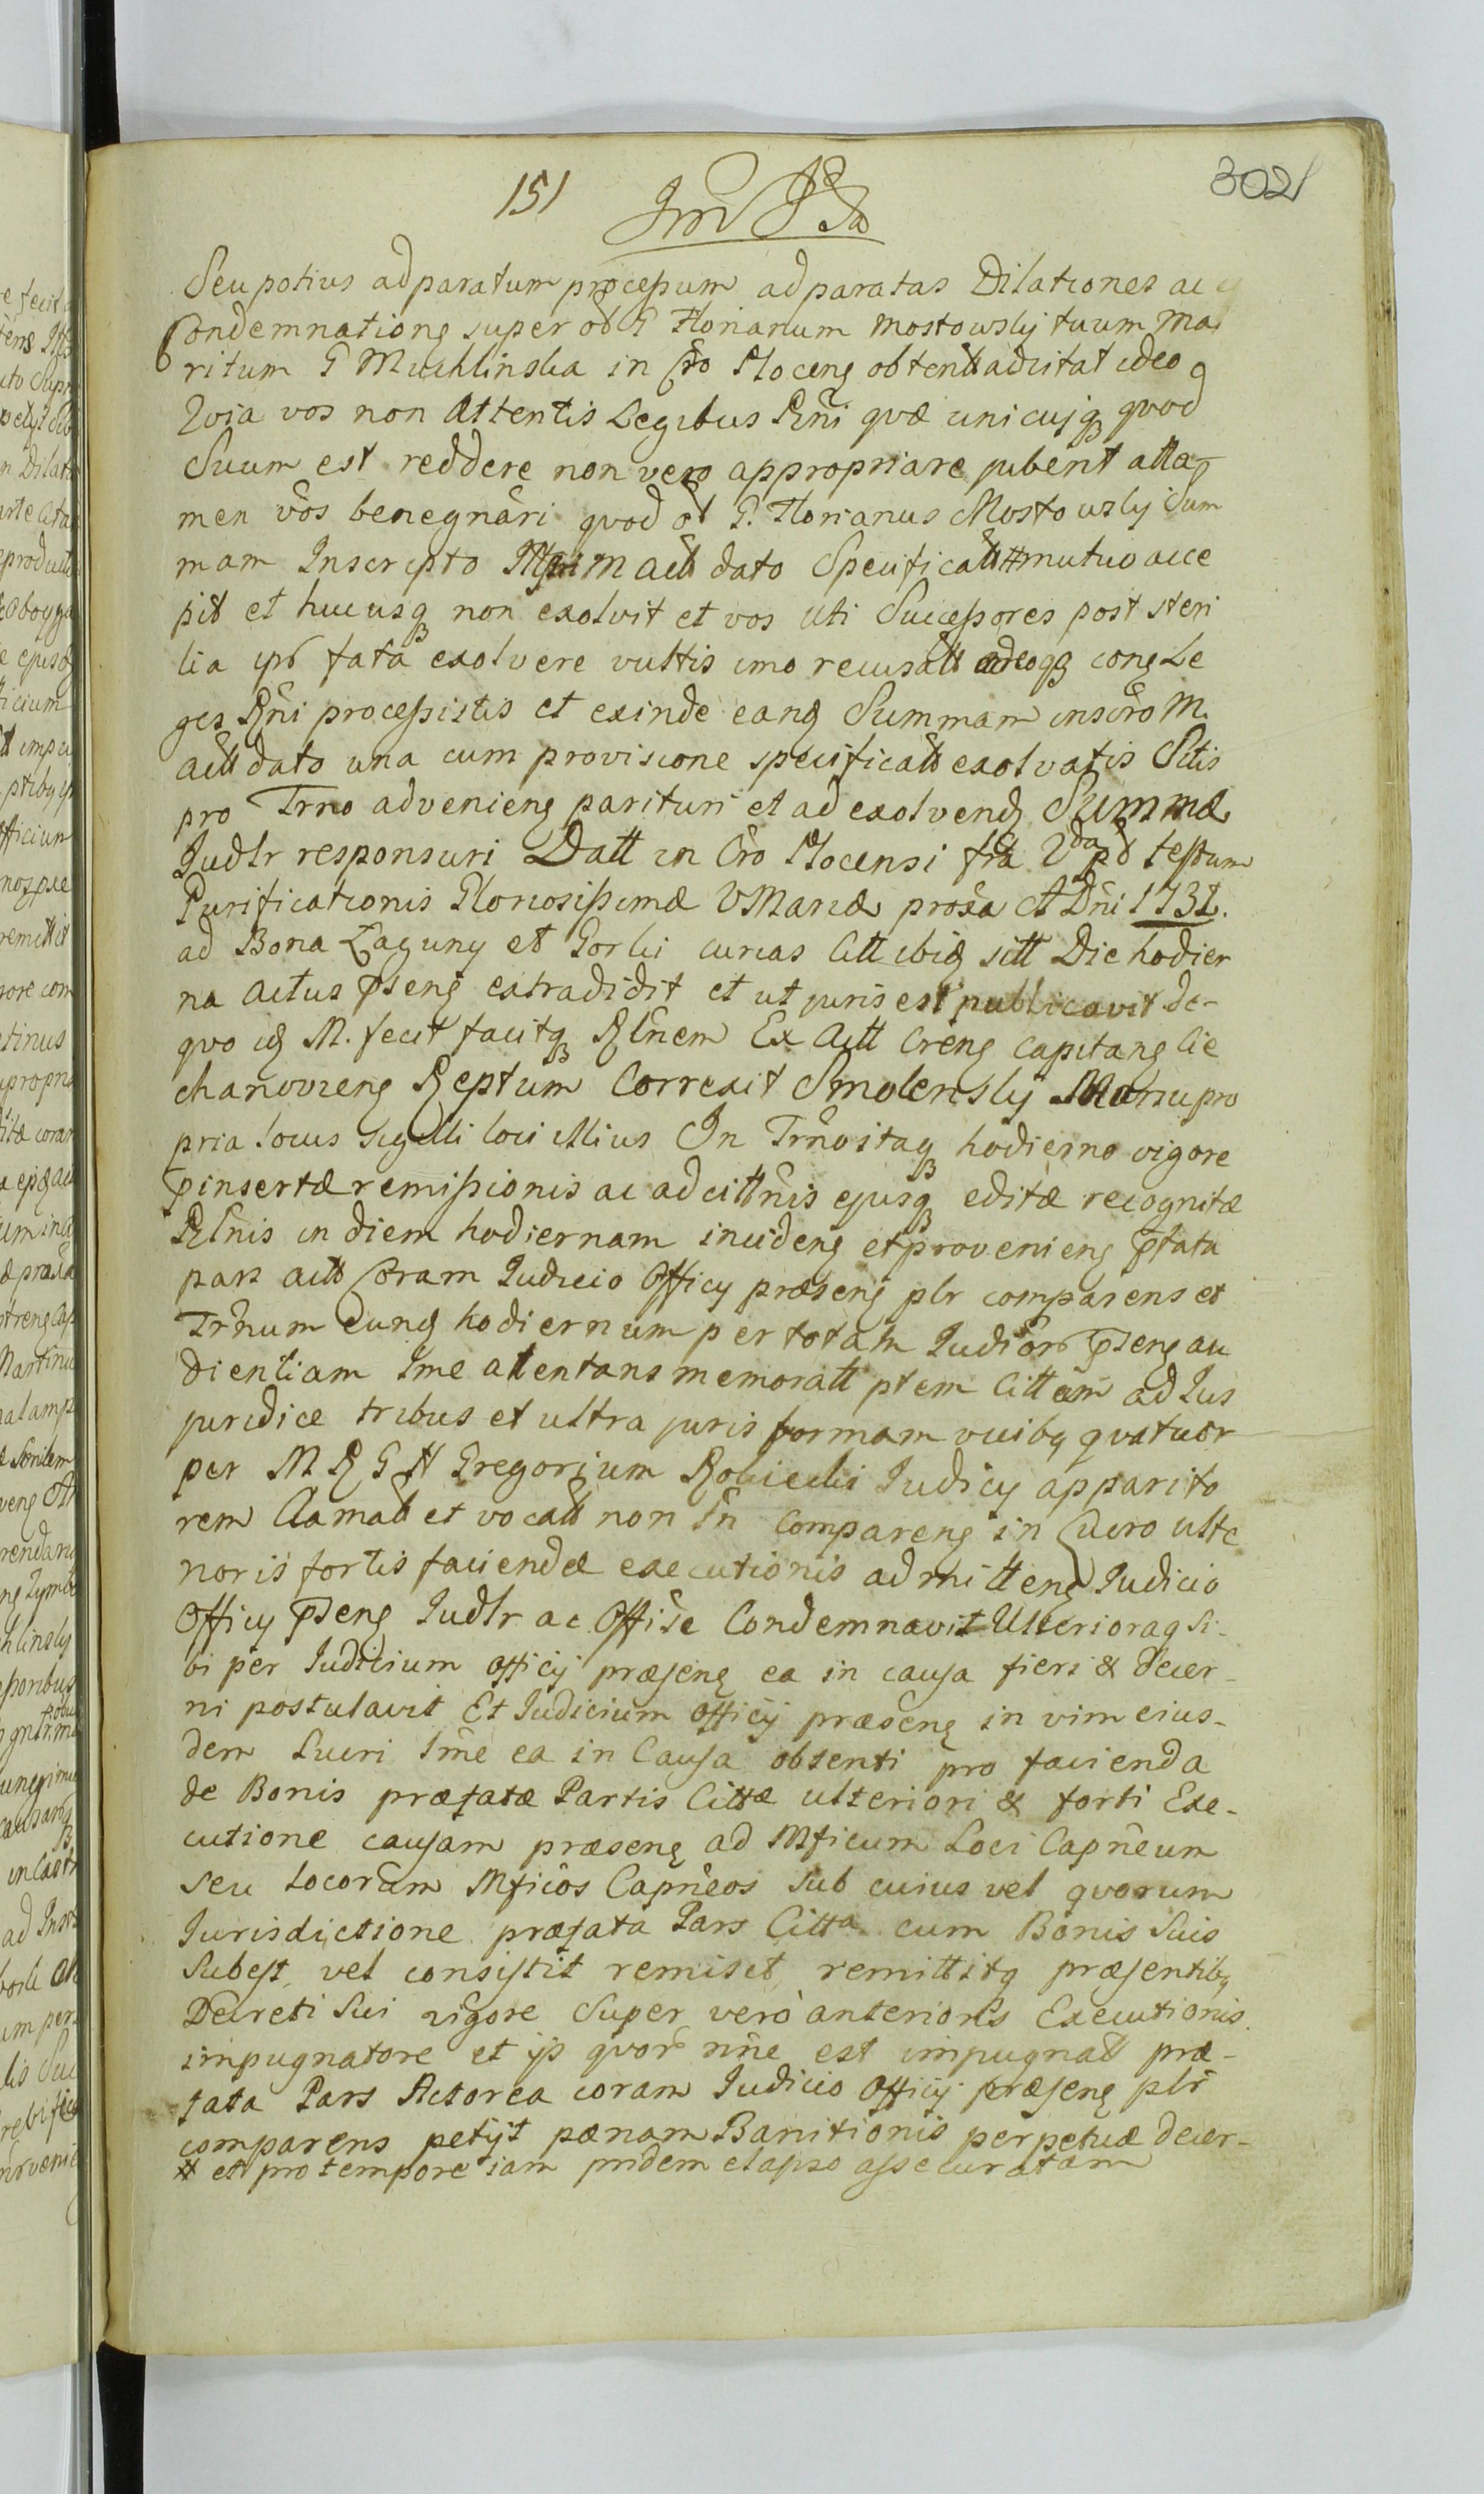 151
302
Seu potius ad paratum processum ad paratas Dilationes ac
Condemnationē super ol G Florianum Mostowsky tuum Ma
ritum G Muchlinska in Cro Plocenē obtent adcitat ideo
Quia vos non attentis Legibus Rñi qvæ unicuiq qvod
Suum est reddere non vero appropriare jubent atta
men vos bene gnari qvod ol G. Florianus Mostowsky Sum
mam Inscripto M Act dato Specificatt # mutuo acce
pit et hucusq non exolvit et vos uti Successores post steri
lia ips fata exolvere vultis imo recusatt adeoq conē Le
ges Rñi processistis et exinde eanđ Summam inscro M.
Act dato una cum provisione specificatt exolvatis Sitis
pro Trno advenienē parituri et ad exolvenđ Summæ
Judlr responsuri Datt in Cro Plocensi fria 2da pt festum
Purificationis Gloriosissimæ V Mariæ proxa A Dñi 1731.
ad Bona Łaguny et Gorki curias Citt ibiđ sitt Die hodier
na actus psenē extradidit et ut juris est publicavit de
qvo iđ M. fecit facitq Rlñem Ex Actt Crenē Capitanē Cie
chanovienē Reptum Correxit Smolensky Manu pro
pria Locus Sigilli loci illius In Trño itaq hodierno vigore
pinsertæ remissionis ac ad cittñis ejusq editæ recognitæ
Rlñis in diem hodiernam incidenē et provenienē pfata
pars actt Coram Judicio Officy præsenē plr comparens et
Trñum eunđ hodiernum per totam Judior psenē au
dientiam Ime attentans memoratt ptem Cittam ad Jus
juridice tribus et ultra juris formam vicibq qvatuor
per M R G H Gregorium Robiecki Judicy apparito
rem Clamatt et vocatt non tn Comparenē in Lucro ulte
rioris fortis faciendæ executionis admittenđ Judicio
Officy psenē Judlr ac Offise Condemnavit Ulterioraq Si
bi per Judicium officij præsenē ea in causa fieri & decer-
ni postulavit Et Judicium officij præsenē in vim eius-
dem Lucri Ime ea in Causa obtenti pro facienda
de Bonis præfatæ Partis Cittæ ulteriori & forti Exe-
cutione causam præsenē ad Mficum Loci Capñeum
seu Locorum Mficos Capñeos sub cuius vel qvorum
Jurisdictione præfata Pars Citta cum Bonis suis
Subest, vel consistit remisit, remittitq præsentibq
Decreti sui vigore Super verò anterioris Executionis
impugnatore et ijs qvor nñe est impugnatt præ-
fata Pars Actorea coram Judicio Officij præsenē plr
comparens petijt pænam Banitionis perpetuæ decer-
# et pro tempore iam pridem elapso assecuratam